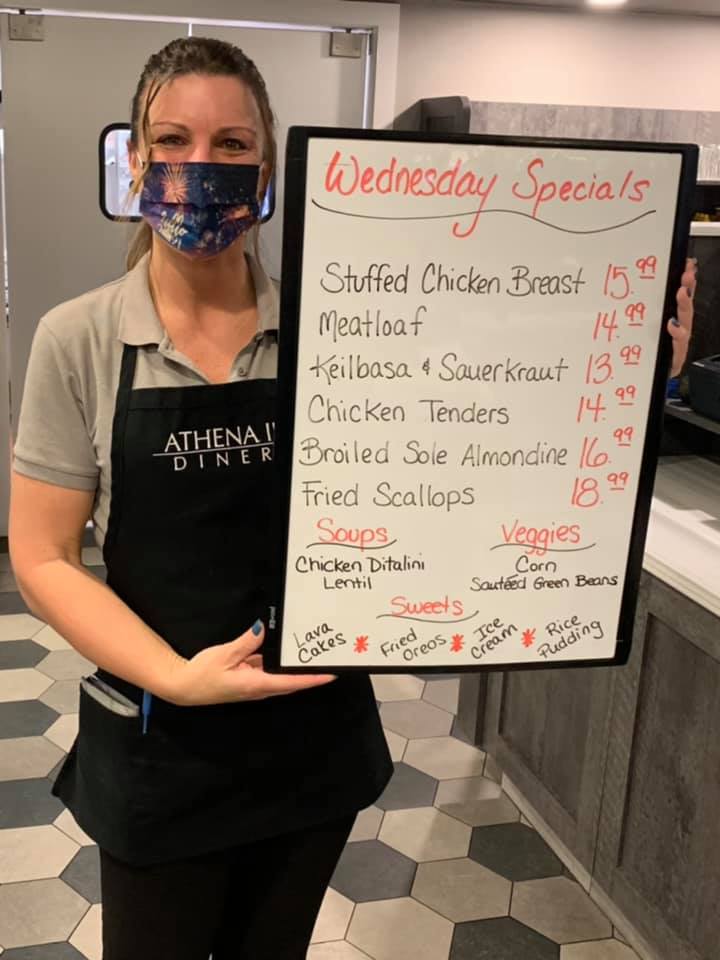 Wednesday Specials
Stuffed Chicken Breast 15.99
Meatloaf 14.99
Keilbasa & Sauerkraut 13.99
Chicken Tenders 14.99
Broiled Sole Almondine 16.99
Fried Scallops 18.99
Soups
Chicken Ditalini
Lentil
Veggies
Corn
Sautéed Green Beans
Sweets
Lava Cakes * Fried Oreos * Ice Cream * Rice Pudding
ATHENA
DINER